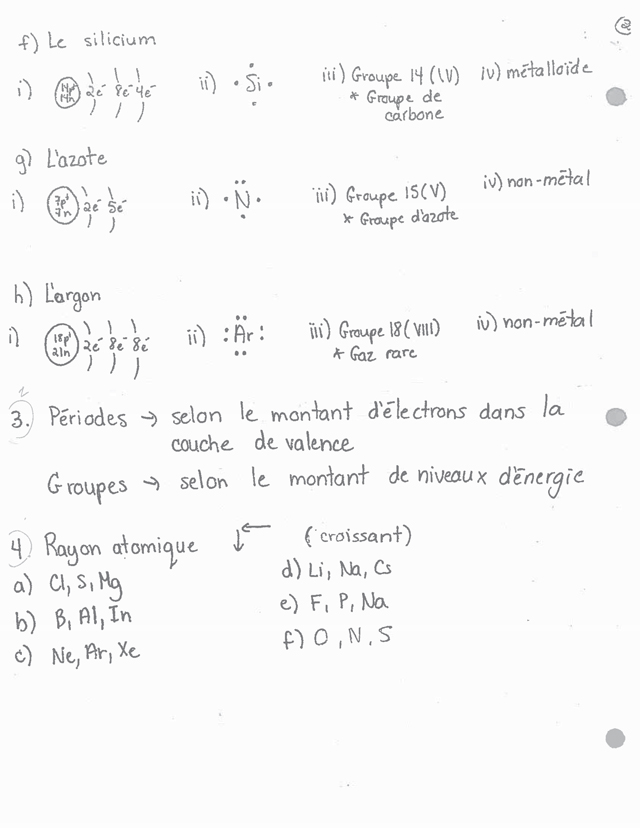 2
f) Le silicium
i) 14p⁺ 14n 2e⁻ 8e⁻ 4e⁻ ii) Si iii) Groupe 14 (IV) iv) métalloïde
* Groupe de
carbone
g) L'azote
i) 7p⁺ 7n 2e⁻ 5e⁻ ii) N iii) Groupe 15 (V) iv) non-métal
* Groupe d'azote
h) L'argon
i) 18p⁺ 21n 2e⁻ 8e⁻ 8e⁻ ii) Ar iii) Groupe 18 (VIII) iv) non-métal
* Gaz rare
3. Périodes → selon le montant d'électrons dans la
couche de valence
Groupes → selon le montant de niveaux d'énergie
4. Rayon atomique ↓ ← (croissant)
a) Cl, S, Mg
b) B, Al, In
c) Ne, Ar, Xe
d) Li, Na, Cs
e) F, P, Na
f) O, N, S